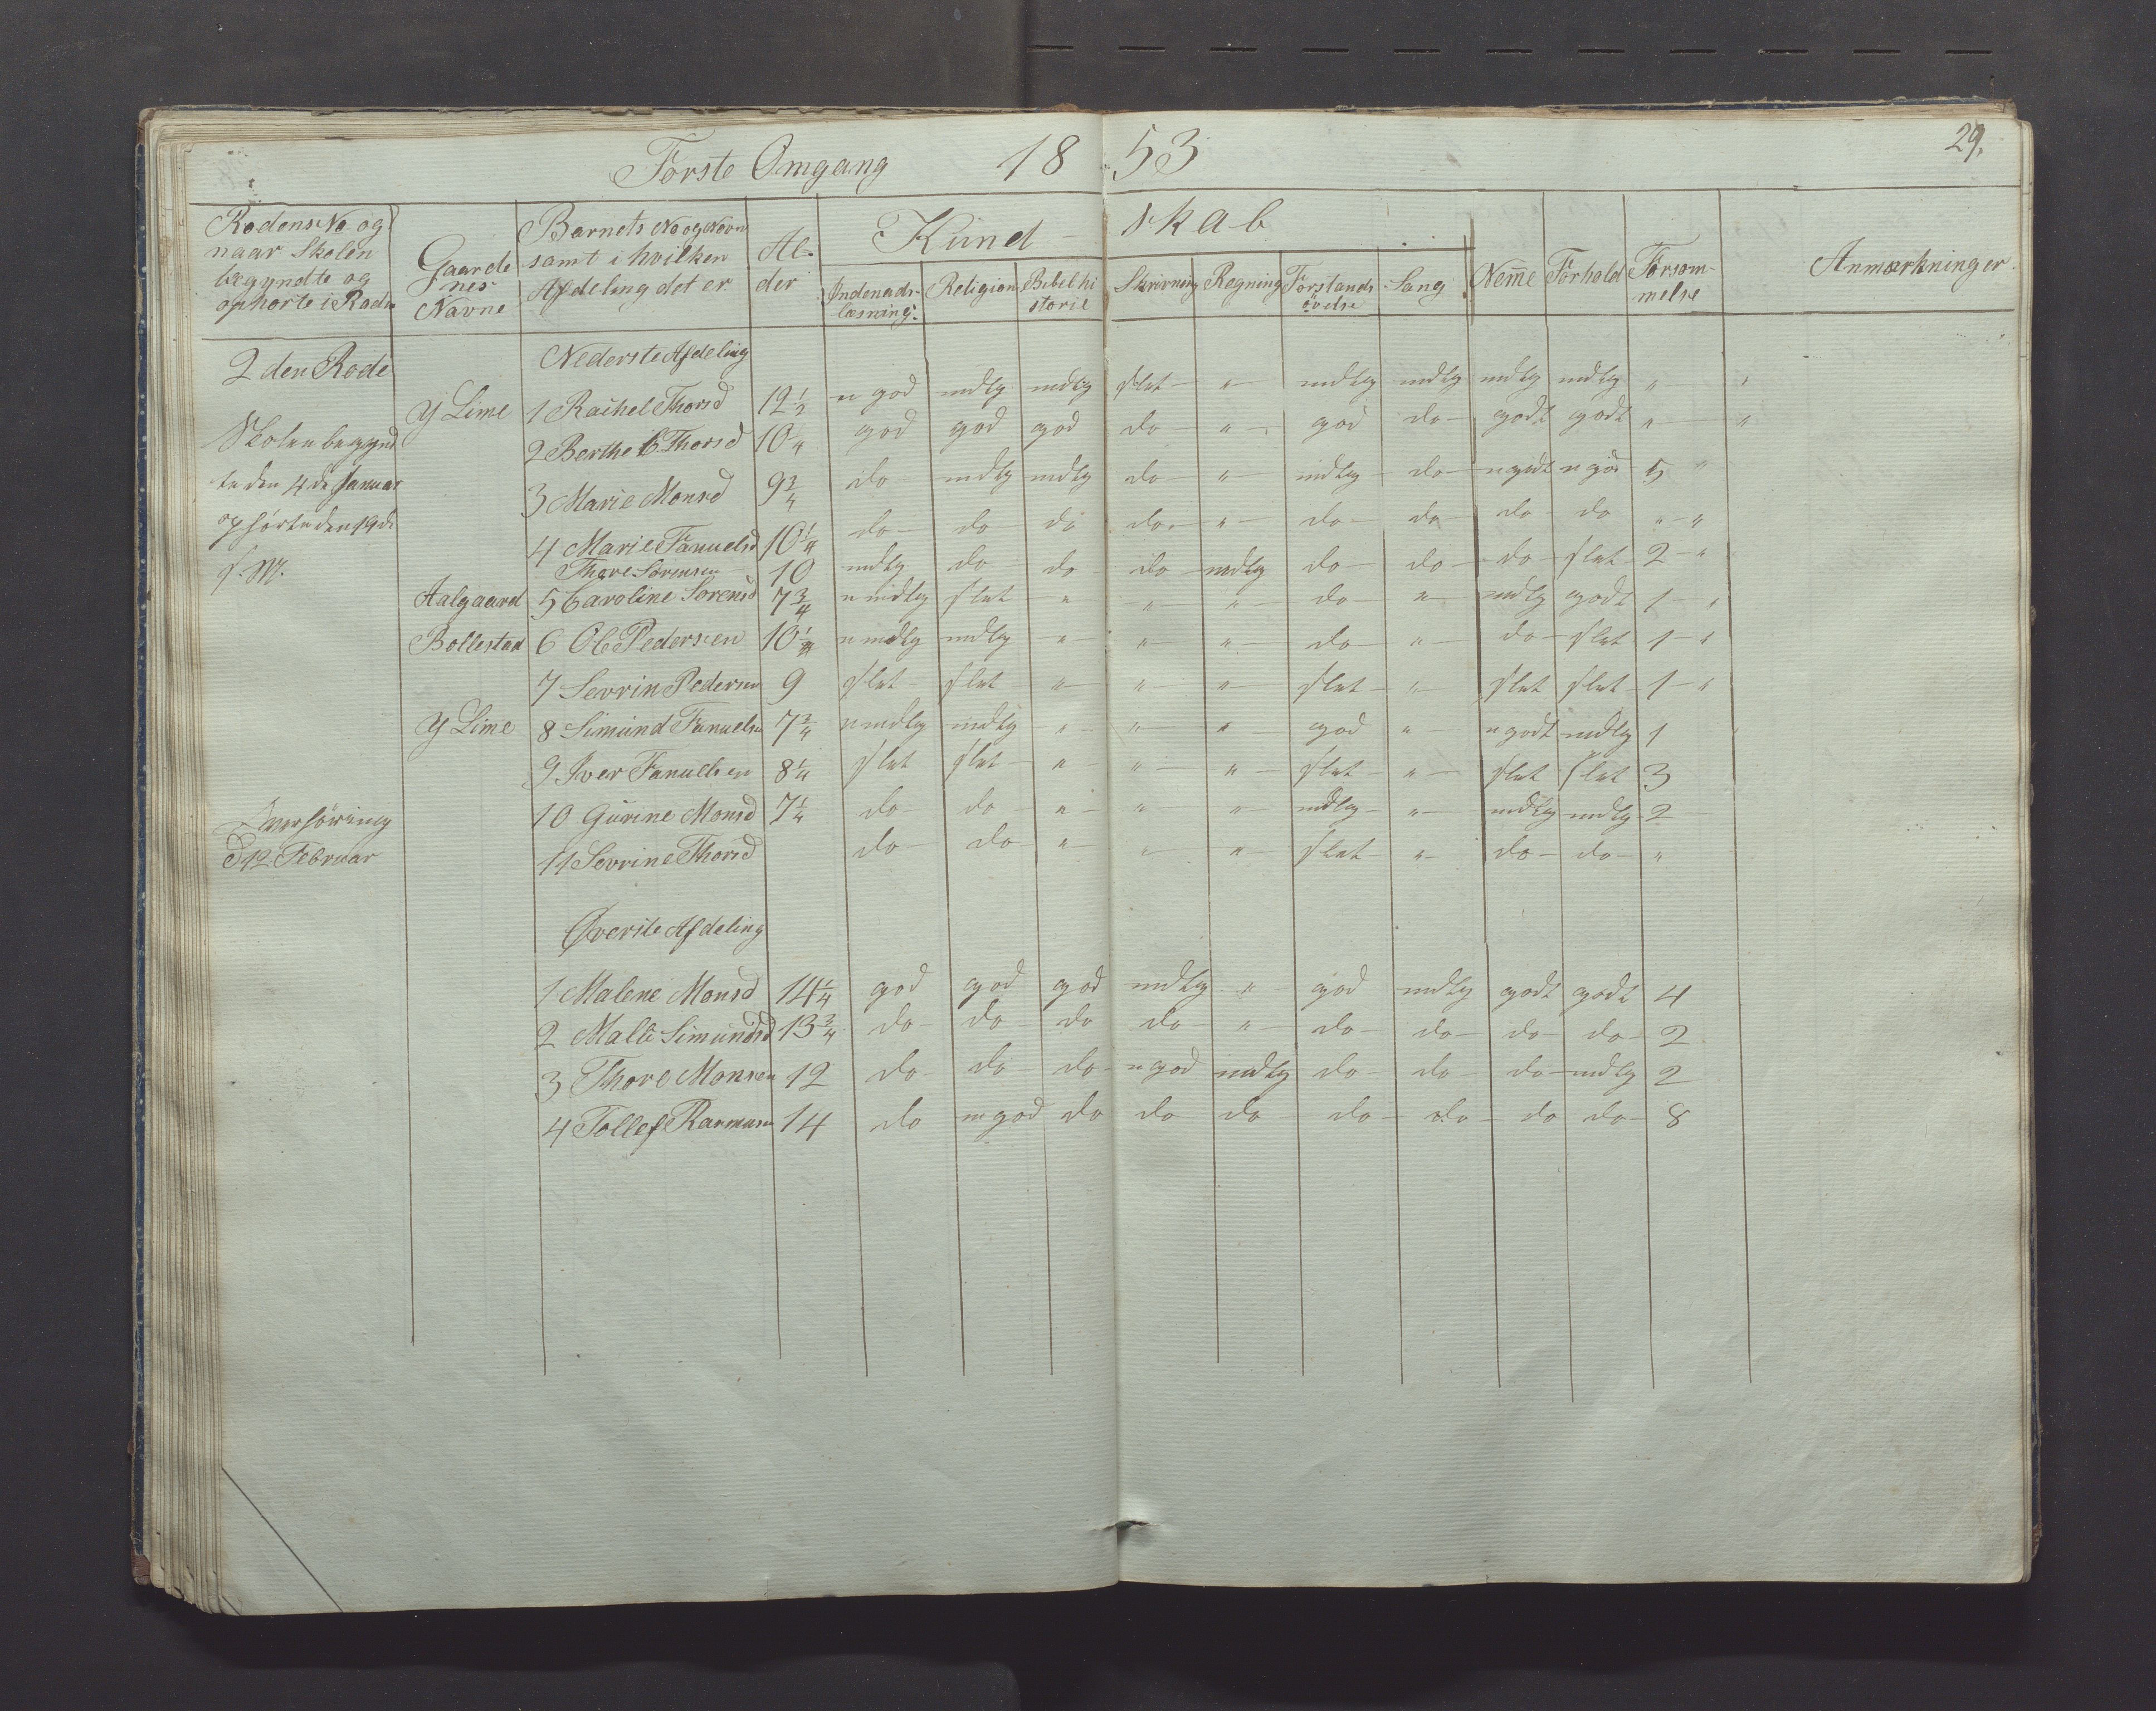 Första Omgang 18 53
29.
Rodens No og
naar Skolen
begyndte og
ophørte i Roden
Gaarde
nes
Navne
Barnets No og Navn
samt i hvilken
Afdeling det er
Al-
der
Kund skab
Indenads-
læsning.
Religion
Bibelhi
storie
Skrivning
Regning
Forstands
øvelse
Sang
Nemme
Forhold
Forsøm-
melse
Anmærkninger.
2den Rode
Nederste Afdeling
Y Lime 1 Rachel Thorsd 12 1/2 n god mdlg mdlg slet " mdlg mdlg mdlg mdlg " "
2 Berthe B Thorsd 10 god god god do " god do godt godt " "
3 Marie Monsd 9 3/4 do mdlg mdlg do " mdlg do n godt n god 5 "
4 Marie Fanuelsd 10 1/4 do do do do " do do do do " "
Thore Sørensen 10 mdlg do do do mdlg do do do slet 2 "
Aalgaard 5 Caroline Sørensd 7 3/4 n mdlg slet " " " do " mdlg godt 1 "
Bollestad 6 Ole Pedersen 10 n mdlg mdlg " " " do " do slet 1 "
7 Sevrin Pedersen 9 slet slet " " " slet " slet slet 1 "
Y Lime 8 Simund Fanuelsn 7 3/4 n mdlg mdlg " " " god " n godt mdlg 1
9 Iver Fanuelsen 8 1/4 slet slet " " " slet " slet slet 3
10 Gurine Monsd 7 1/4 do do " " " mdlg " mdlg mdlg 2
11 Sevrine Thorsd do do " " " slet " do do "
Skolen begynd
te den 4de Januar
ophørte den 19de
s. M.
Overhøring
d 12 Februar
Øverste Afdeling
1 Malene Monsd 14 1/4 god god god mdlg " god mdlg godt godt 4
2 Male Simundsd 13 3/4 do do do do " do do do do 2
3 Thore Monsen 12 do do do n god mdlg do do do mdlg 2
4 Tollef Rasmusn 14 do n god do do do do do do do 8